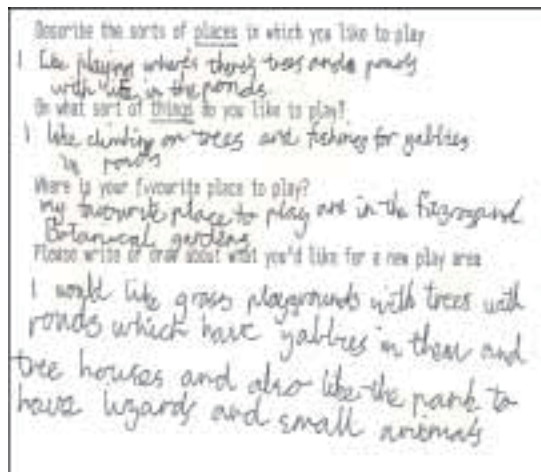 Describe the sorts of places in which you like to play
I like playing where's there's trees and ponds
with life in the ponds
On what sort of things do you like to play?
I like climbing on trees and fishing for yabbies
in ponds
Where is your favourite place to play?
my favourite place to play are in the fitzroy and
Botanical gardens
Please write or draw about what you'd like for a new play area
I would like grass playgrounds with trees with
ponds which have yabbies in them and
tree houses and also like the park to
have lizards and small animals